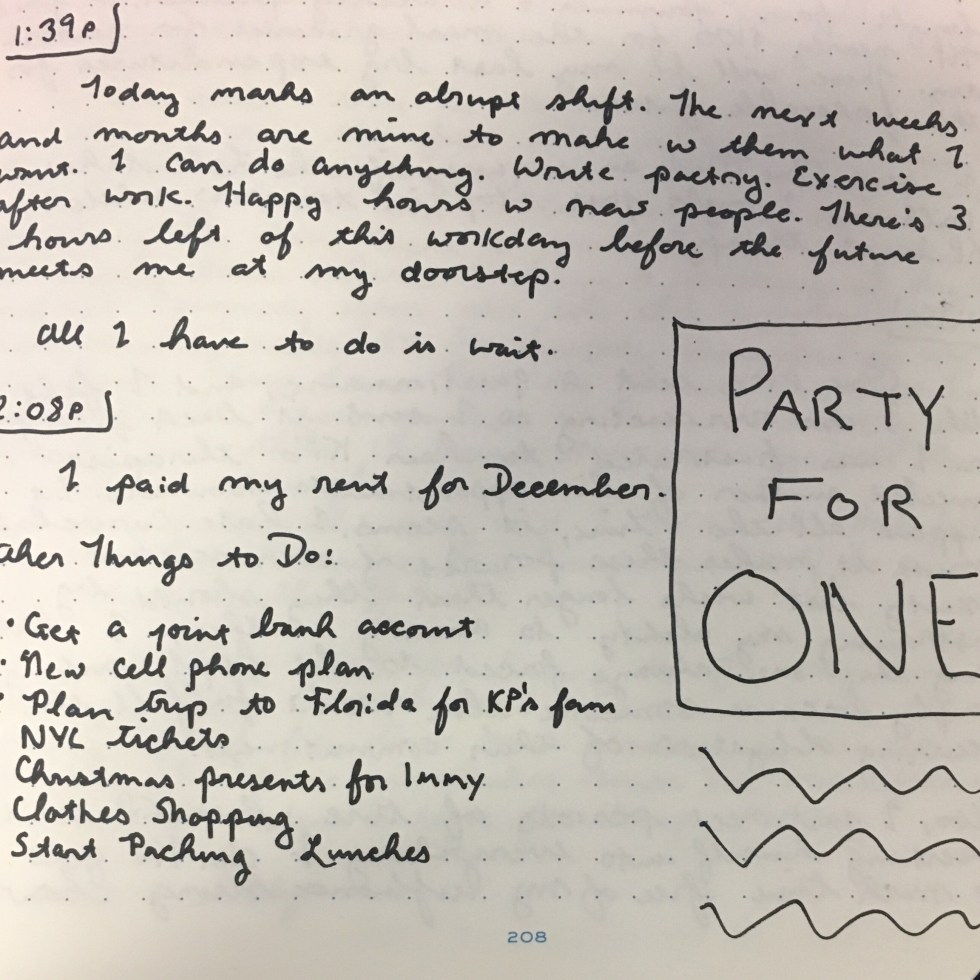 1:39P
Today marks an abrupt shift. The next weeks
and months are mine to make w them what I
want. I can do anything. Write poetry. Exercise
after work. Happy hours w new people. There's 3
hours left of this workday before the future
meets me at my doorstep.
All I have to do is wait.
2:08P
I paid my rent for December.
Other Things to Do:
• Get a joint bank account
• New cell phone plan
• Plan trip to Florida for KP's fam
NYC tickets
Christmas presents for
Clothes Shopping
Start Packing Lunches
PARTY
FOR
ONE
208